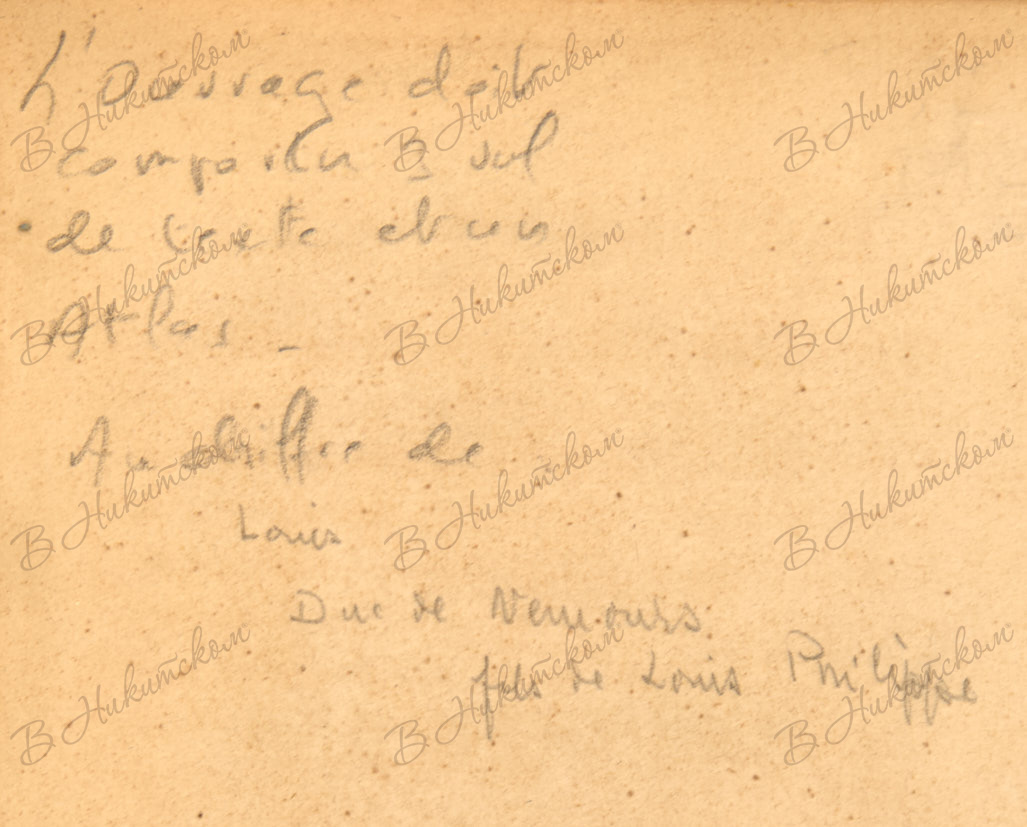 L'Ouvrage doit
comporter 3 vol
de texte et un
Atlas _
Au chiffre de
Louis
Duc de Nemours
fils de Louis Philippe
В. Никитском
В. Никитском
В. Никитском
В. Никитском
В. Никитском
В. Никитском
В. Никитском
В. Никитском
В. Никитском
В. Никитском
В. Никитском
В. Никитском